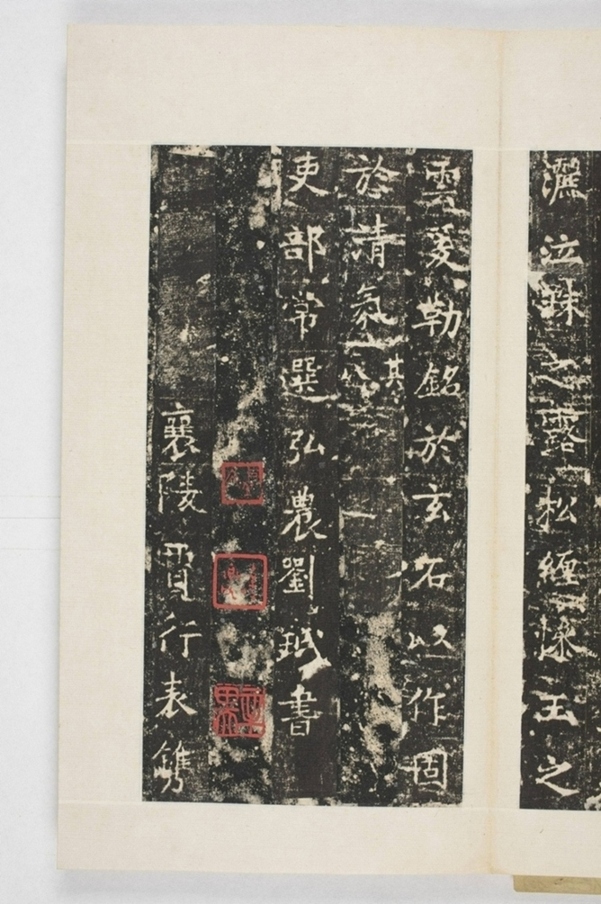 灑泣珠之露松纏悚玉之
雲爰勒銘於玄石以作固
於清氣其
吏部常選弘農劉珉書
襄陵賈行表鐫